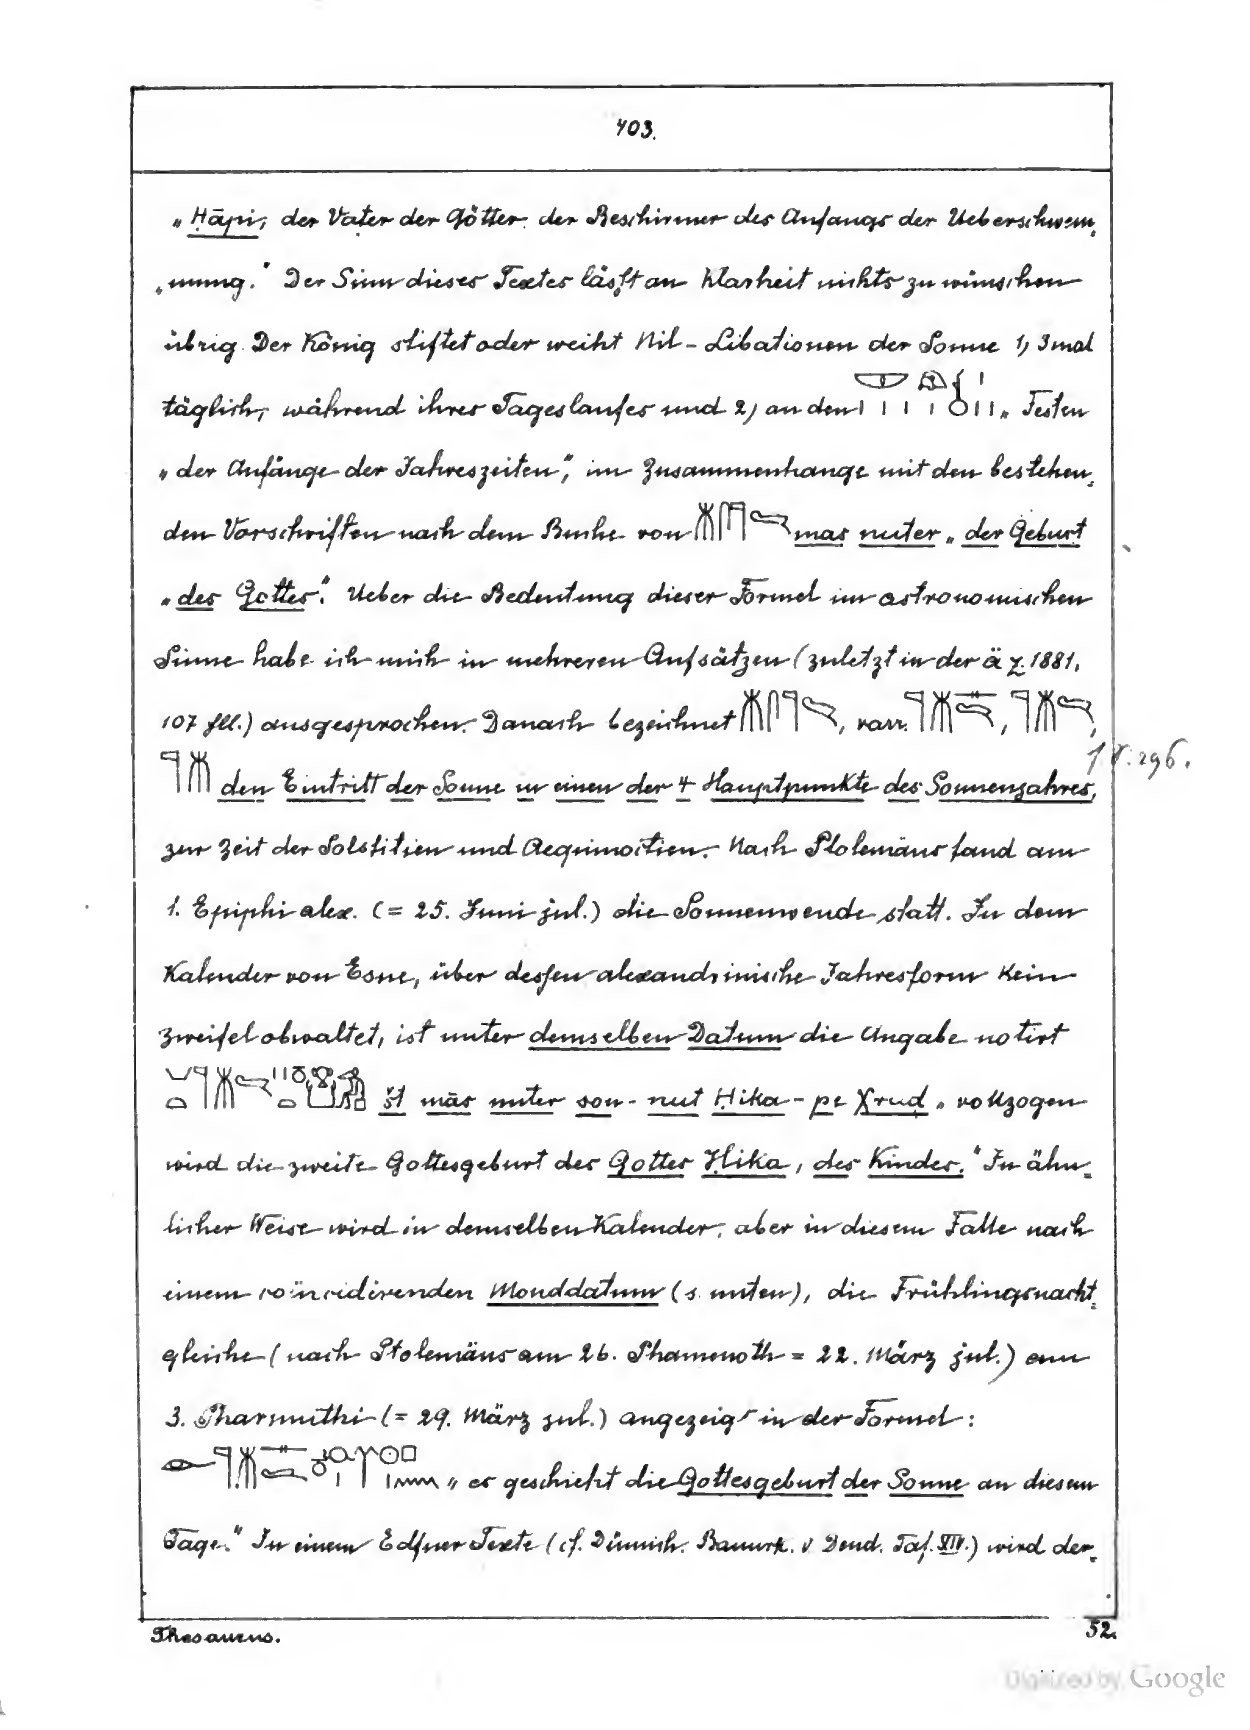 403.
„Hāpi, der Vater der Götter, der Beschirmer des Anfangs der Ueberschwem„
„mung.“ Der Sinn dieses Textes läſst an Klarheit nichts zu wünschen
übrig. Der König stiftet oder weiht Nil-Libationen der Sonne 1, 3mal
täglich, während ihres Tageslaufes und 2) an den „Festen
„der Anfänge der Jahreszeiten“, im Zusammenhange mit den bestehen„
den Vorschriften nach dem Buche von mas nuter „der Geburt
„des Gottes“. Ueber die Bedeutung dieser Formel im astronomischen
Sinne habe ich mich in mehreren Aufsätzen (zuletzt in der ä. z. 1881,
107 fll.) ausgesprochen. Danach bezeichnet , varr. , ,
den Eintritt der Sonne in einen der 4 Hauptpunkte des Sonnenjahres,
V. 296.
zur Zeit der Solstitien und Aequinoctien. Nach Ptolemäus fand am
1. Epiphi alex. (= 25. Juni jul.) die Sonnenwende statt. In dem
Kalender von Esne, über deſsen alexandrinische Jahresform kein
Zweifel obwaltet, ist unter demselben Datum die Angabe notirt
št mās nuter son-nut Hika-pe χrud „vollzogen
wird die zweite Gottesgeburt des Gottes Hika, des Kindes.“ In ähn„
licher Weise wird in demselben Kalender, aber in diesem Falle nach
einem coïncidirenden Monddatum (s. unten), die Frühlingsnacht„
gleiche (nach Ptolemäus am 26. Phamenoth = 22. März jul.) am
3. Pharmuthi (= 29. März jul.) angezeigt in der Formel:
„es geschieht die Gottesgeburt der Sonne an diesem
Tage.“ In einem Edfuer Texte (cf. Dümich. Bauurk. v. Dend. Taf. XIV.) wird der„
Thesaurus.
52.
Digitized by Google